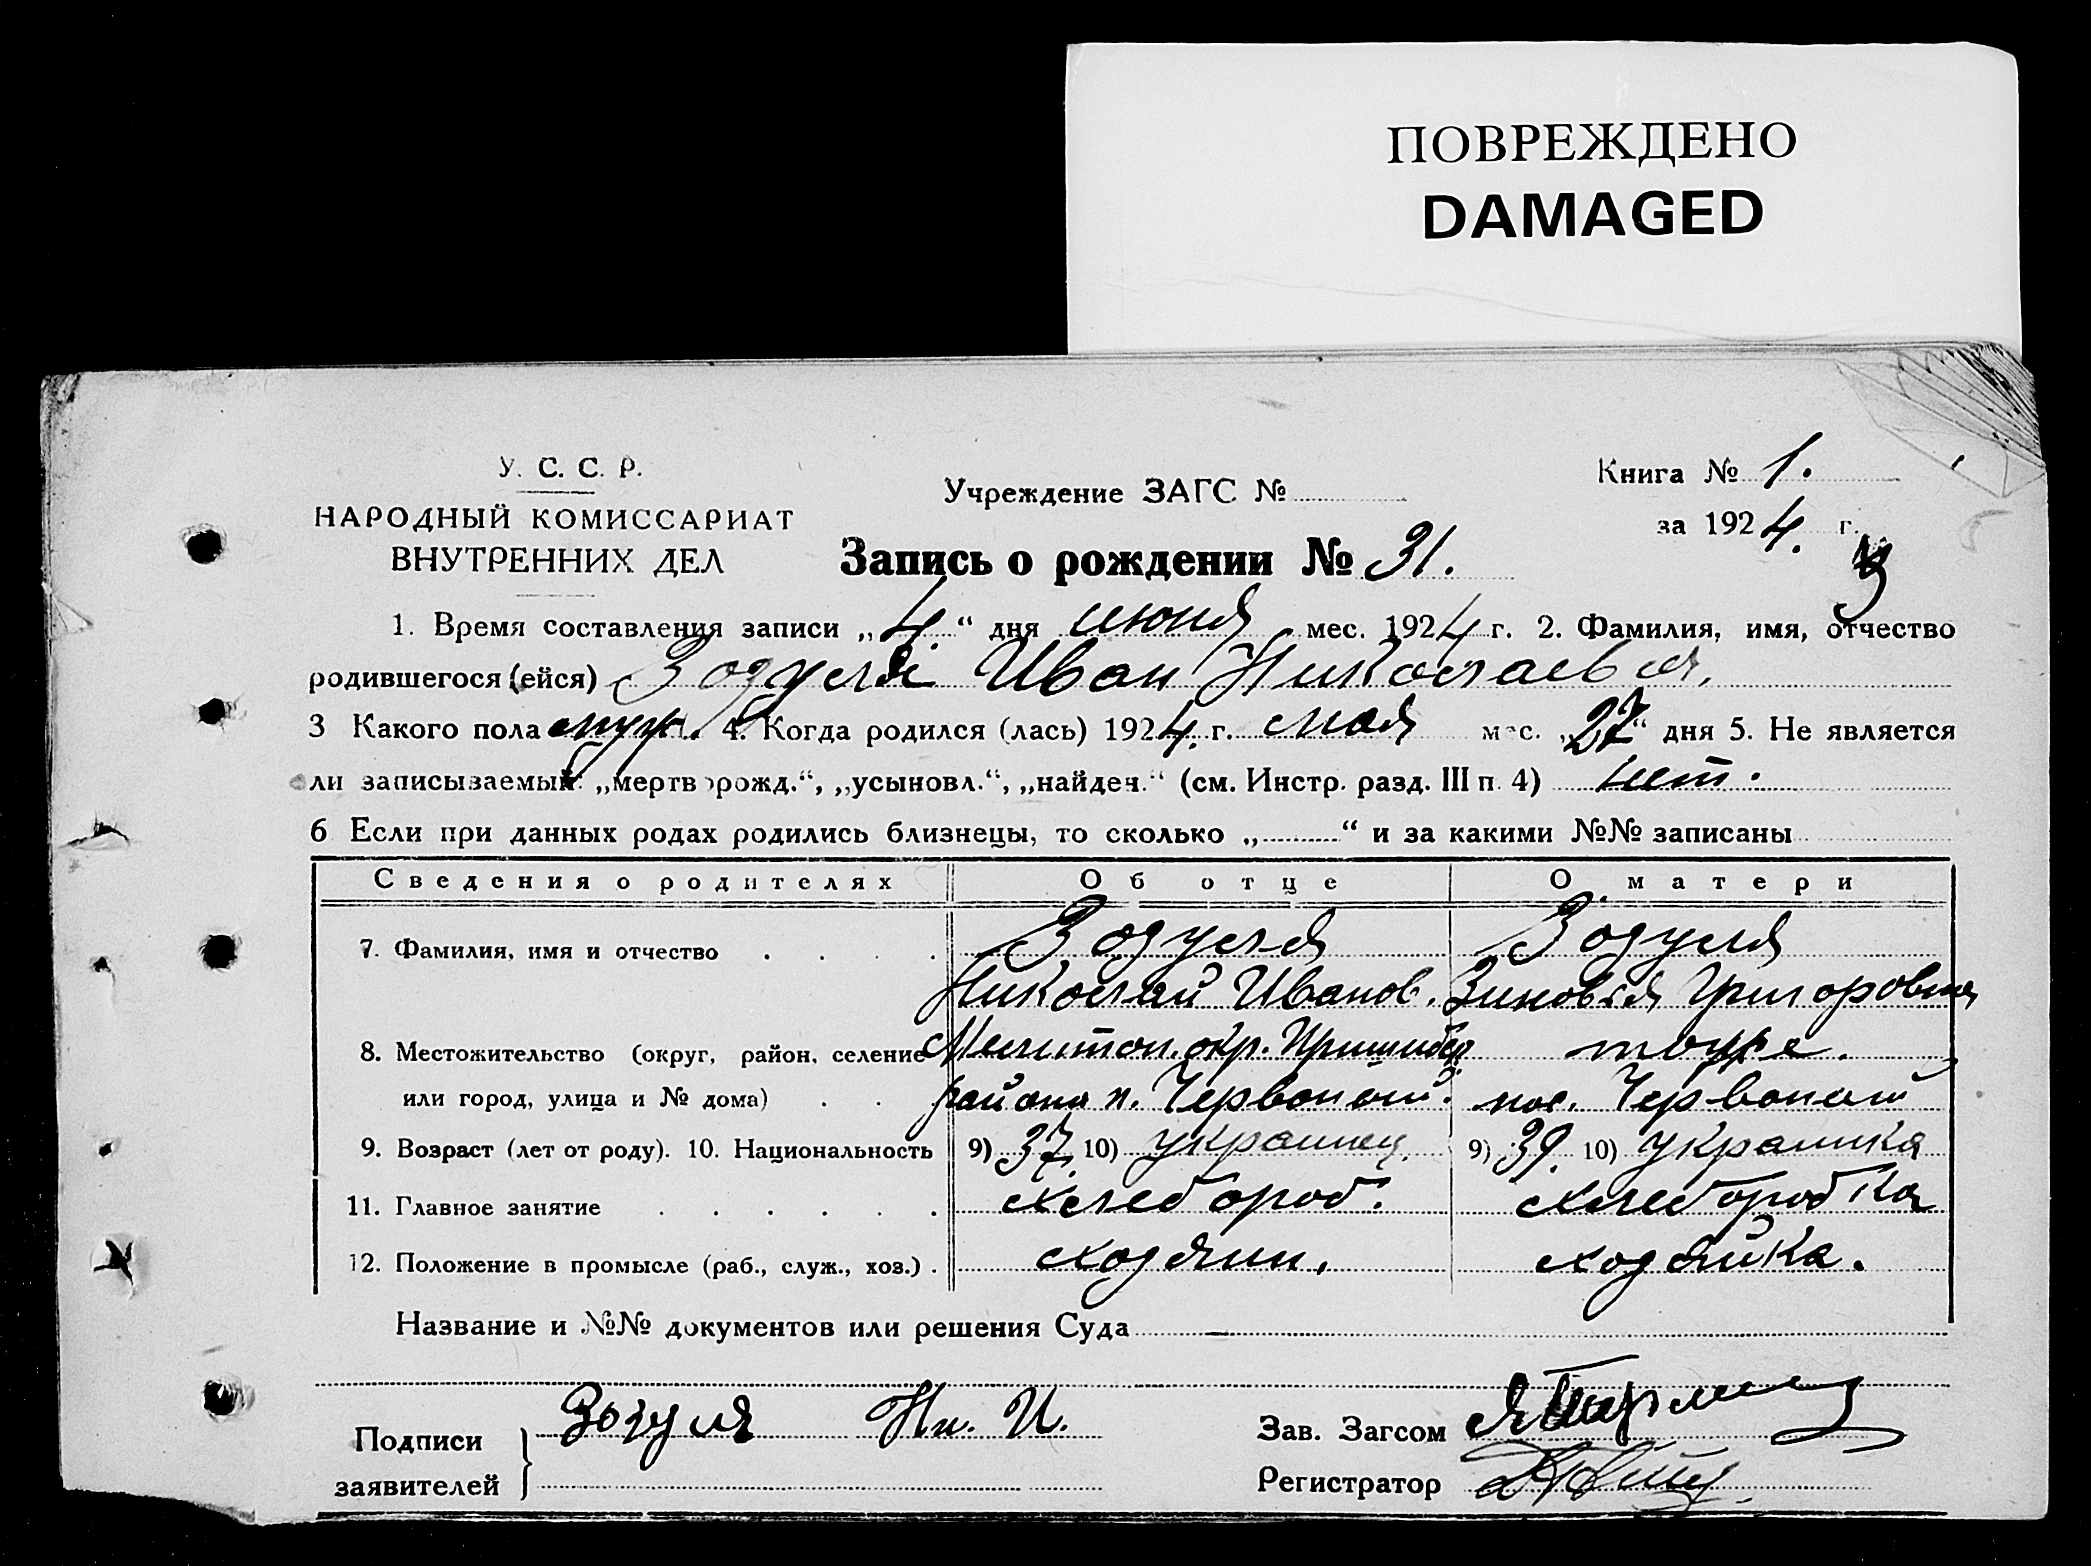 ПОВРЕЖДЕНО
DAMAGED
У. С. С. Р.
НАРОДНЫЙ КОМИССАРИАТ
ВНУТРЕННИХ ДЕЛ
Учреждение ЗАГС №
Книга № 1.
за 1924. г.
Запись о рождении № 31.
3
1. Время составления записи „4“ дня июня мес. 1924 г. 2. Фамилия, имя, отчество
родившегося (ейся) Зозуля Иван Николаев
3 Какого пола муж. 4. Когда родился (лась) 1924. г. мая мес. „27“ дня 5. Не является
ли записываемый: „мертворожд.“, „усыновл.“, „найден.“ (см. Инстр. разд. III п. 4) нет.
6 Если при данных родах родились близнецы, то сколько „“ и за какими №№ записаны
Сведения о родителях Об отце О матери
7. Фамилия, имя и отчество Зозуля Зозуля
Николай Иванов. Зиновья Григоровна
8. Местожительство (округ, район, селение Мелитоп. окр. Пришиб тоже.
или город, улица и № дома) района п. Червоный. пос. Червоный
9. Возраст (лет от роду). 10. Национальность 9) 37. 10) украинец. 9) 39. 10) украинка
11. Главное занятие хлебороб. хлеборобка
12. Положение в промысле (раб., служ., хоз.) хозяин. хозяйка.
Название и №№ документов или решения Суда —
Подписи заявителей } Зозуля Ни. И.
Зав. Загсом
Регистратор